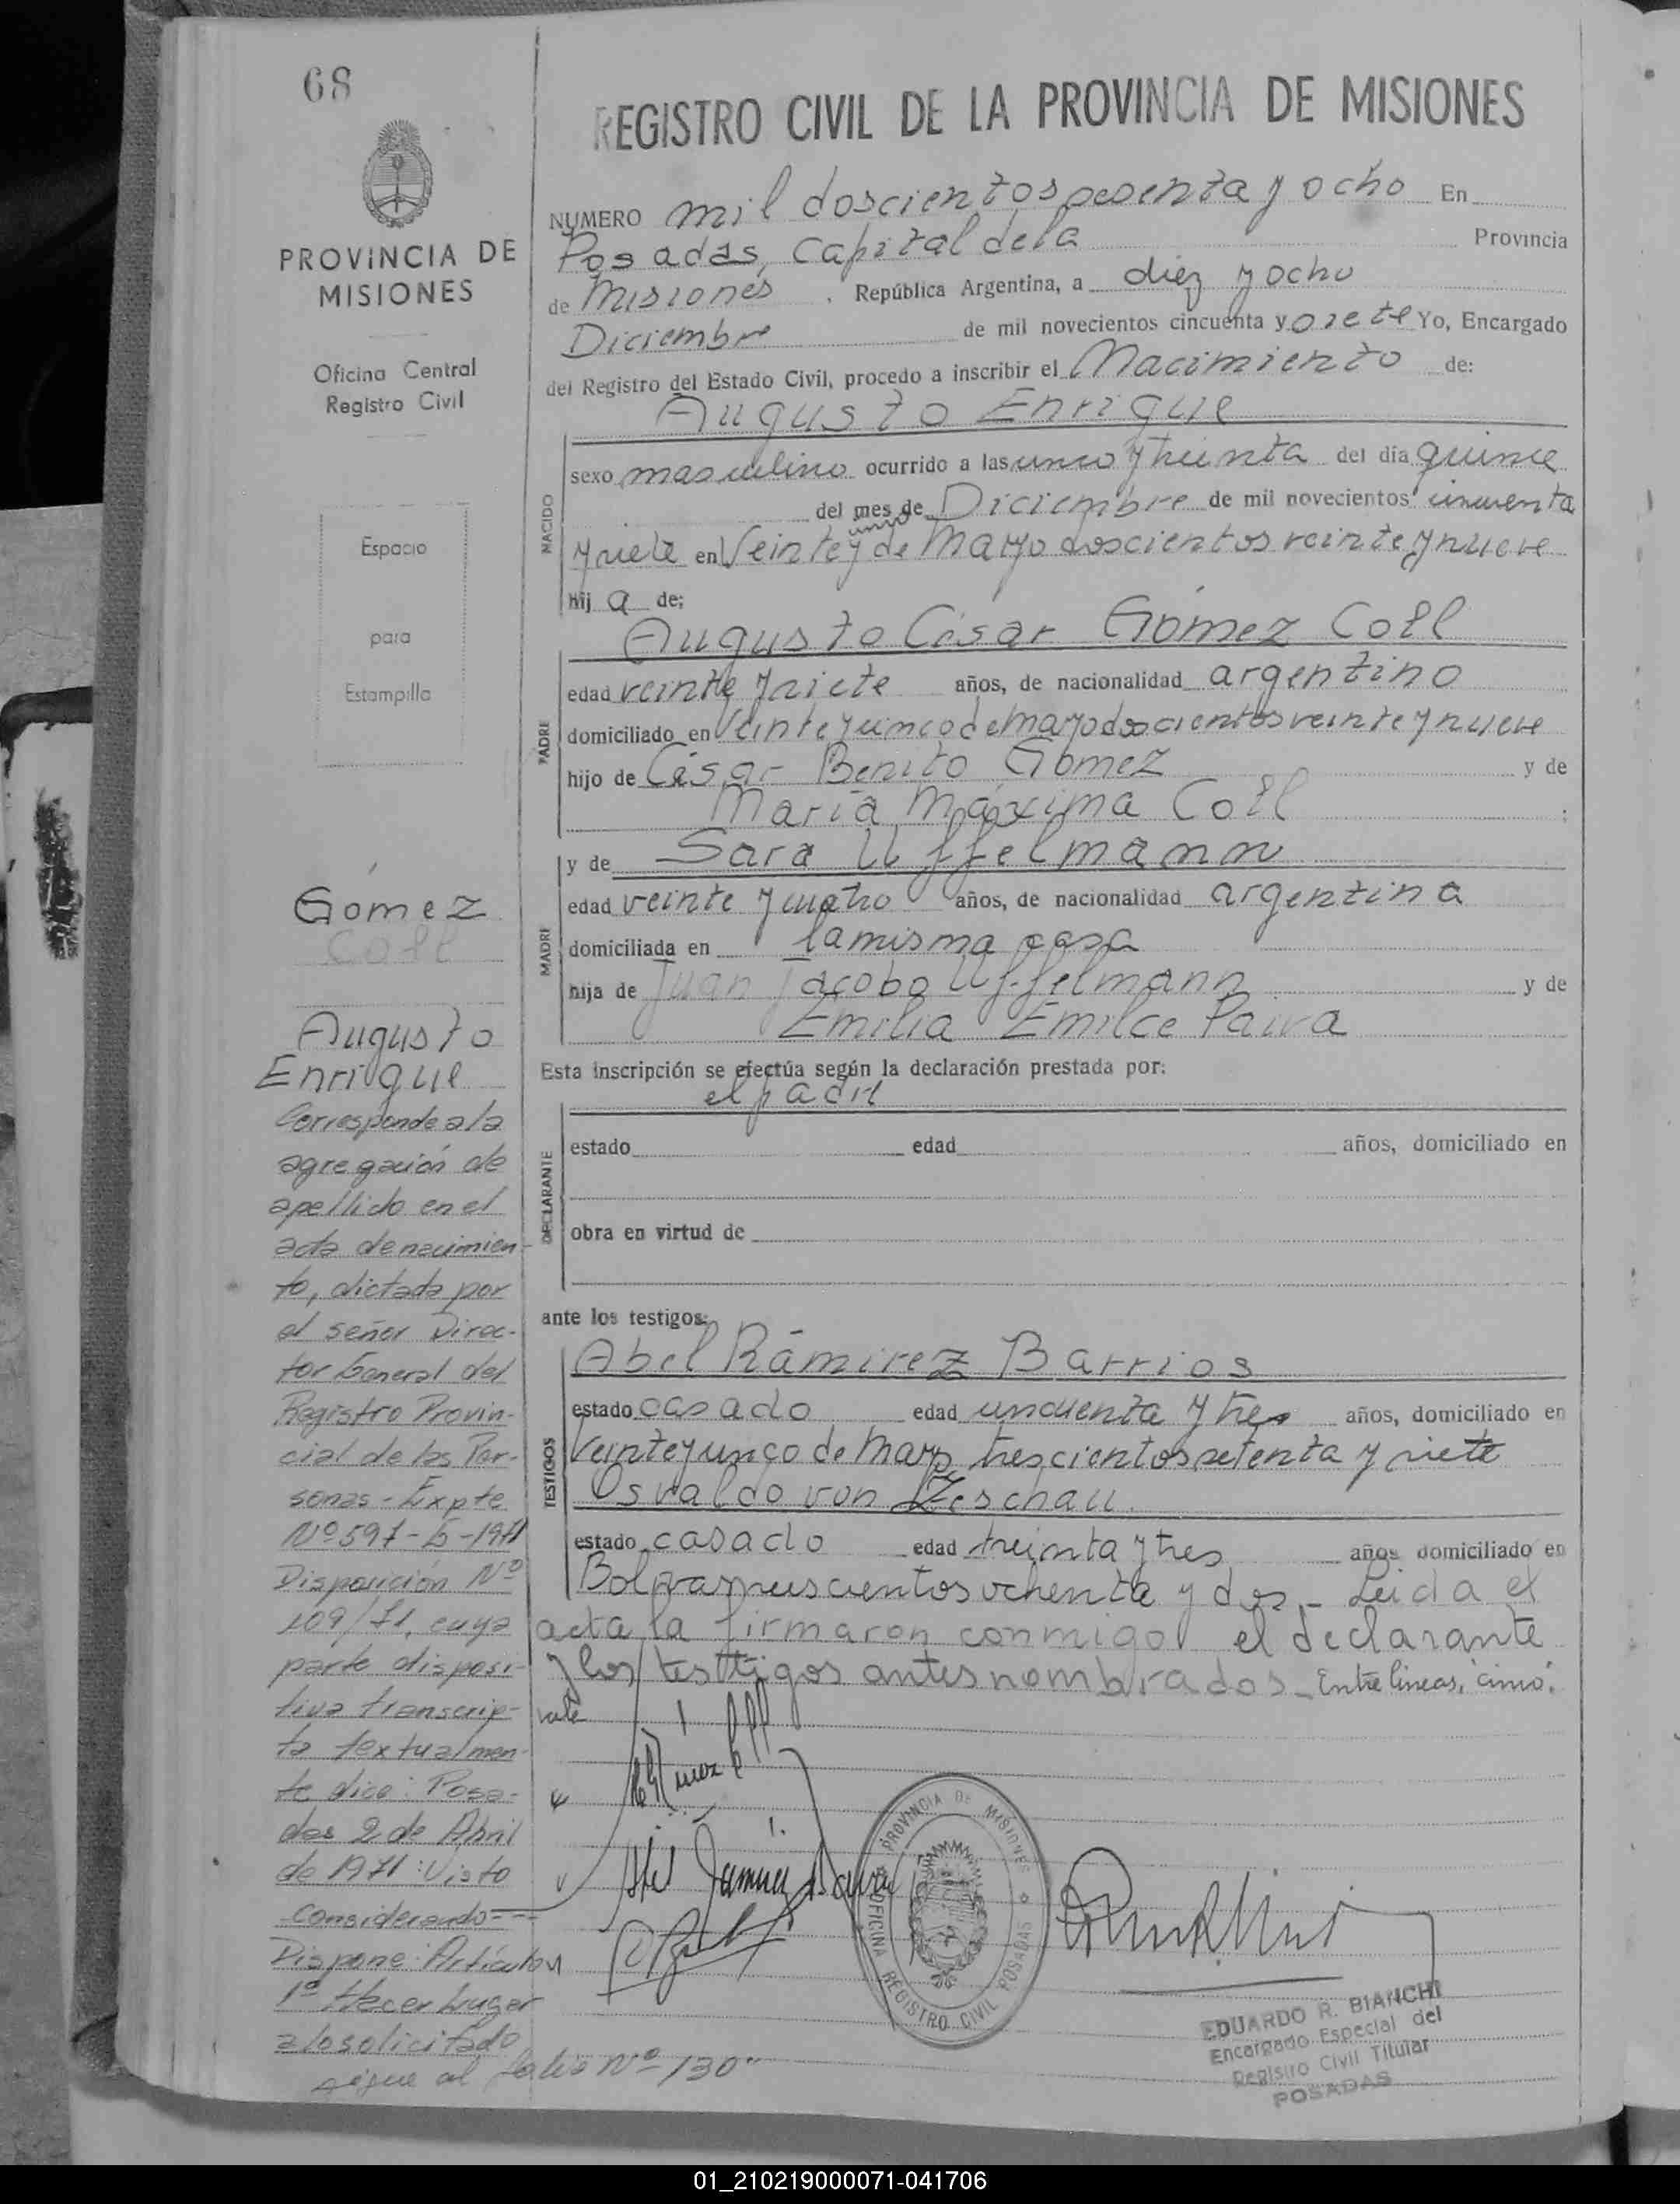 68
REGISTRO CIVIL DE LA PROVINCIA DE MISIONES
PROVINCIA DE
MISIONES
Oficina Central
Registro Civil
Espacio
para
Estampilla
NUMERO mil doscientos sesenta y ocho En
Posadas, Capital de la Provincia
de Misiones, República Argentina, a diez y ocho
Diciembre de mil novecientos cincuenta y siete Yo, Encargado
del Registro del Estado Civil, procedo a inscribir el Nacimiento de:
Augusto Enrique
NACIDO
sexo masculino ocurrido a las cinco y treinta del día quince
del mes de Diciembre de mil novecientos cincuenta
cinco
y siete en Veinte y de Mayo doscientos veinte y nueve
hij a de:
Augusto César Gómez Coll
PADRE
edad veinte y siete años, de nacionalidad argentino
domiciliado en Veinte y cinco de Mayo doscientos veinte y nueve
hijo de César Benito Gómez y de
María Máxima Coll ;
y de Sara Uffelmann
MADRE
edad veinte y cuatro años, de nacionalidad argentina
domiciliada en la misma casa
hija de Juan Jacobo Uffelmann y de
Emilia Emilce Paiva
Esta inscripción se efectúa según la declaración prestada por:
el padre
DECLARANTE
estado edad años, domiciliado en
obra en virtud de
ante los testigos:
Abel Rámirez Barrios
TESTIGOS
estado casado edad cincuenta y tres años, domiciliado en
Veinte y cinco de Mayo trescientos setenta y siete
Osvaldo von Zeschau.
estado casado edad treinta y tres años domiciliado en
cientos ochenta y dos.- Leida el
acta la firmaron conmigo el declarante
y los testtigos antes nombrados.- Entre lineas, "cinco".
vale
Gómez
Coll
Augusto
Enrique
Corresponde a la
agregación de
apellido en el
acta de nacimien-
to, dictada por
el señor Direc-
tor General del
Registro Provin-
cial de las Per-
sonas - Expte
Nº 597- -1971
Disposición Nº
109/71, cuya
parte disposi-
tiva transcrip-
ta textualmen-
te dice: Posa-
das 2 de Abril
de 1971: Visto
Considerando---
Dispone: Artículo
1º Hacer lugar
a lo solicitado
sigue al folio Nº 130"
PROVINCIA DE MISIONES
OFICINA REGISTRO CIVIL POSADAS
EDUARDO R. BIANCHI
Encargado Especial del
Registro Civil Titular
POSADAS
01_210219000071-041706